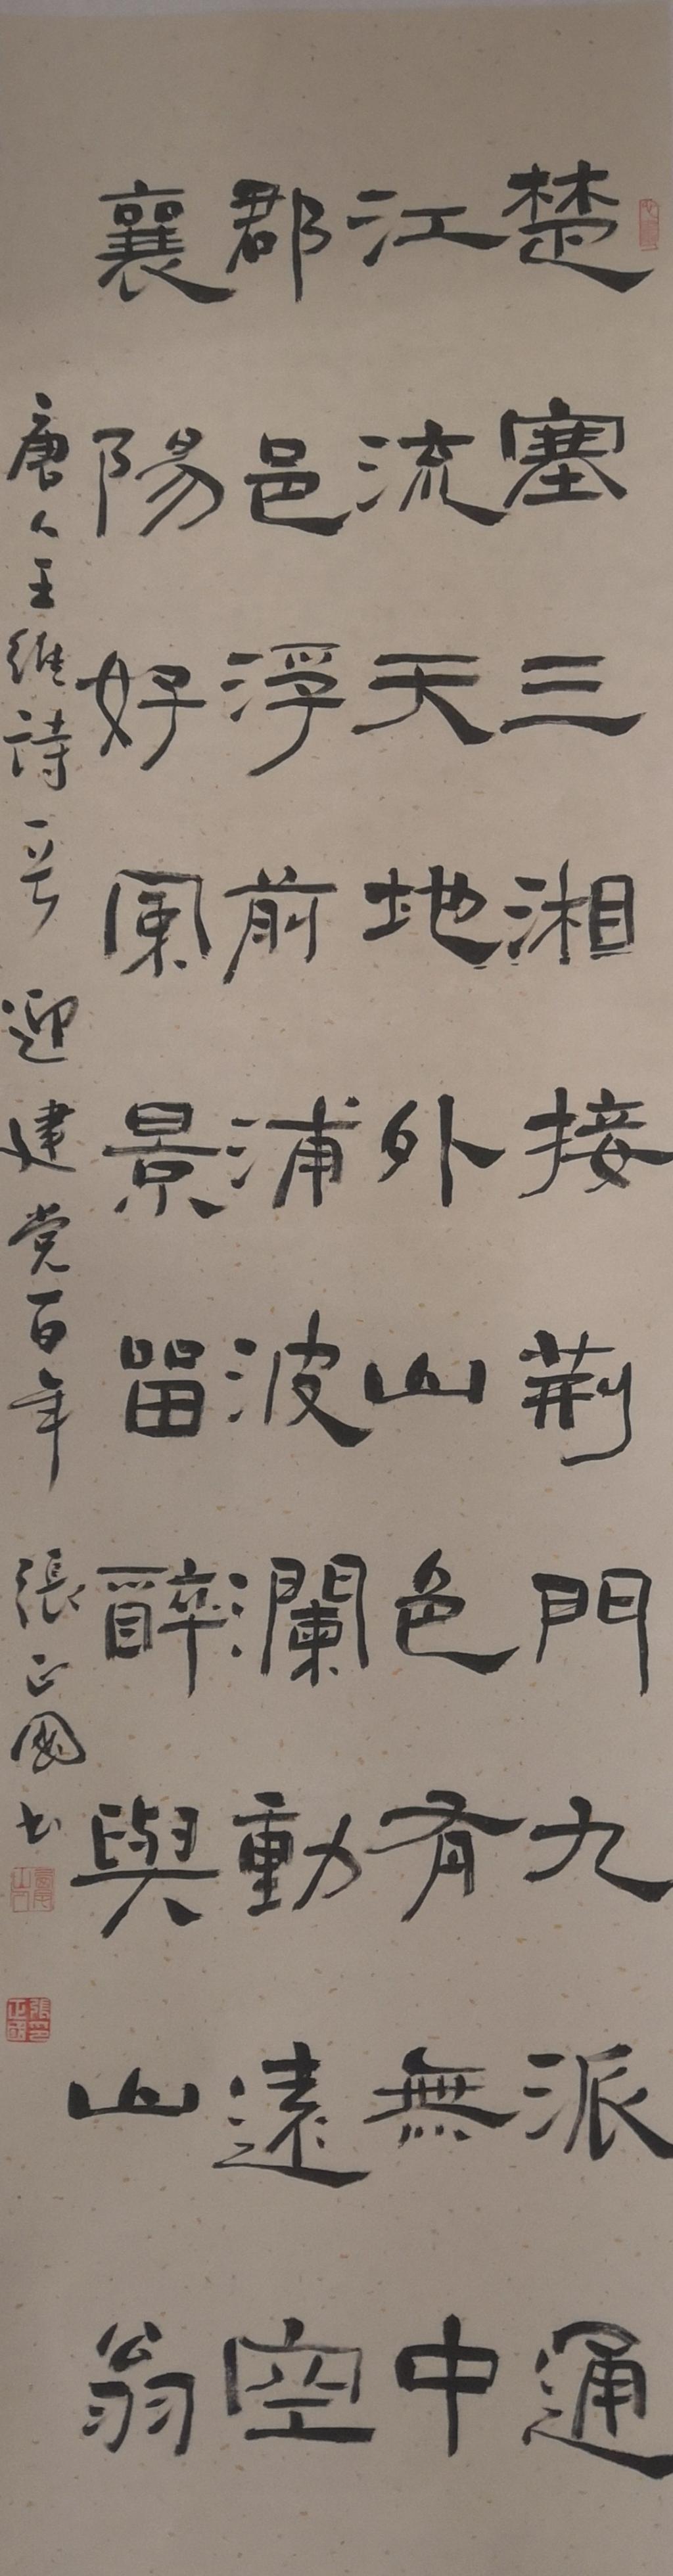 楚塞三湘接荊門九派通
江流天地外山色有無中
郡邑浮前浦波瀾動遠空
襄陽好風景留醉與山翁
唐人王維詩一首 迎建党百年 張正國书
張印正國